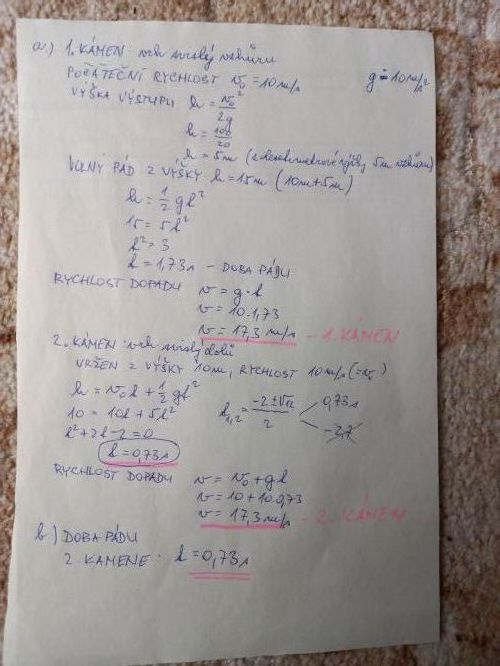 a.) 1. KÁMEN: vrh svislý vzhůru
POČÁTEČNÍ RYCHLOST v₀ = 10 m/s g = 10 m/s²
VÝŠKA VÝSTUPU h = v₀²/2g
h = 100/20
h = 5m (z desetimetrové výšky 5m vzhůru)
VOLNÝ PÁD Z VÝŠKY h = 15m (10m+5m)
h = 1/2 gt²
15 = 5t²
t² = 3
t = 1,73s - DOBA PÁDU
RYCHLOST DOPADU v = g·t
v = 10·1,73
v = 17,3 m/s - 1. KÁMEN
2. KÁMEN: vrh svislý dolů
VRŽEN Z VÝŠKY 10m, RYCHLOST 10m/s (=v₀)
h = v₀t + 1/2 gt²
10 = 10t + 5t² t₁,₂ = (-2 ± √12)/2 0,73s
t² + 2t - 2 = 0 -2,7
t = 0,73s
RYCHLOST DOPADU v = v₀ + gt
v = 10 + 10·0,73
v = 17,3 m/s - 2. KÁMEN
b) DOBA PÁDU
2 KAMENE: t = 0,73s